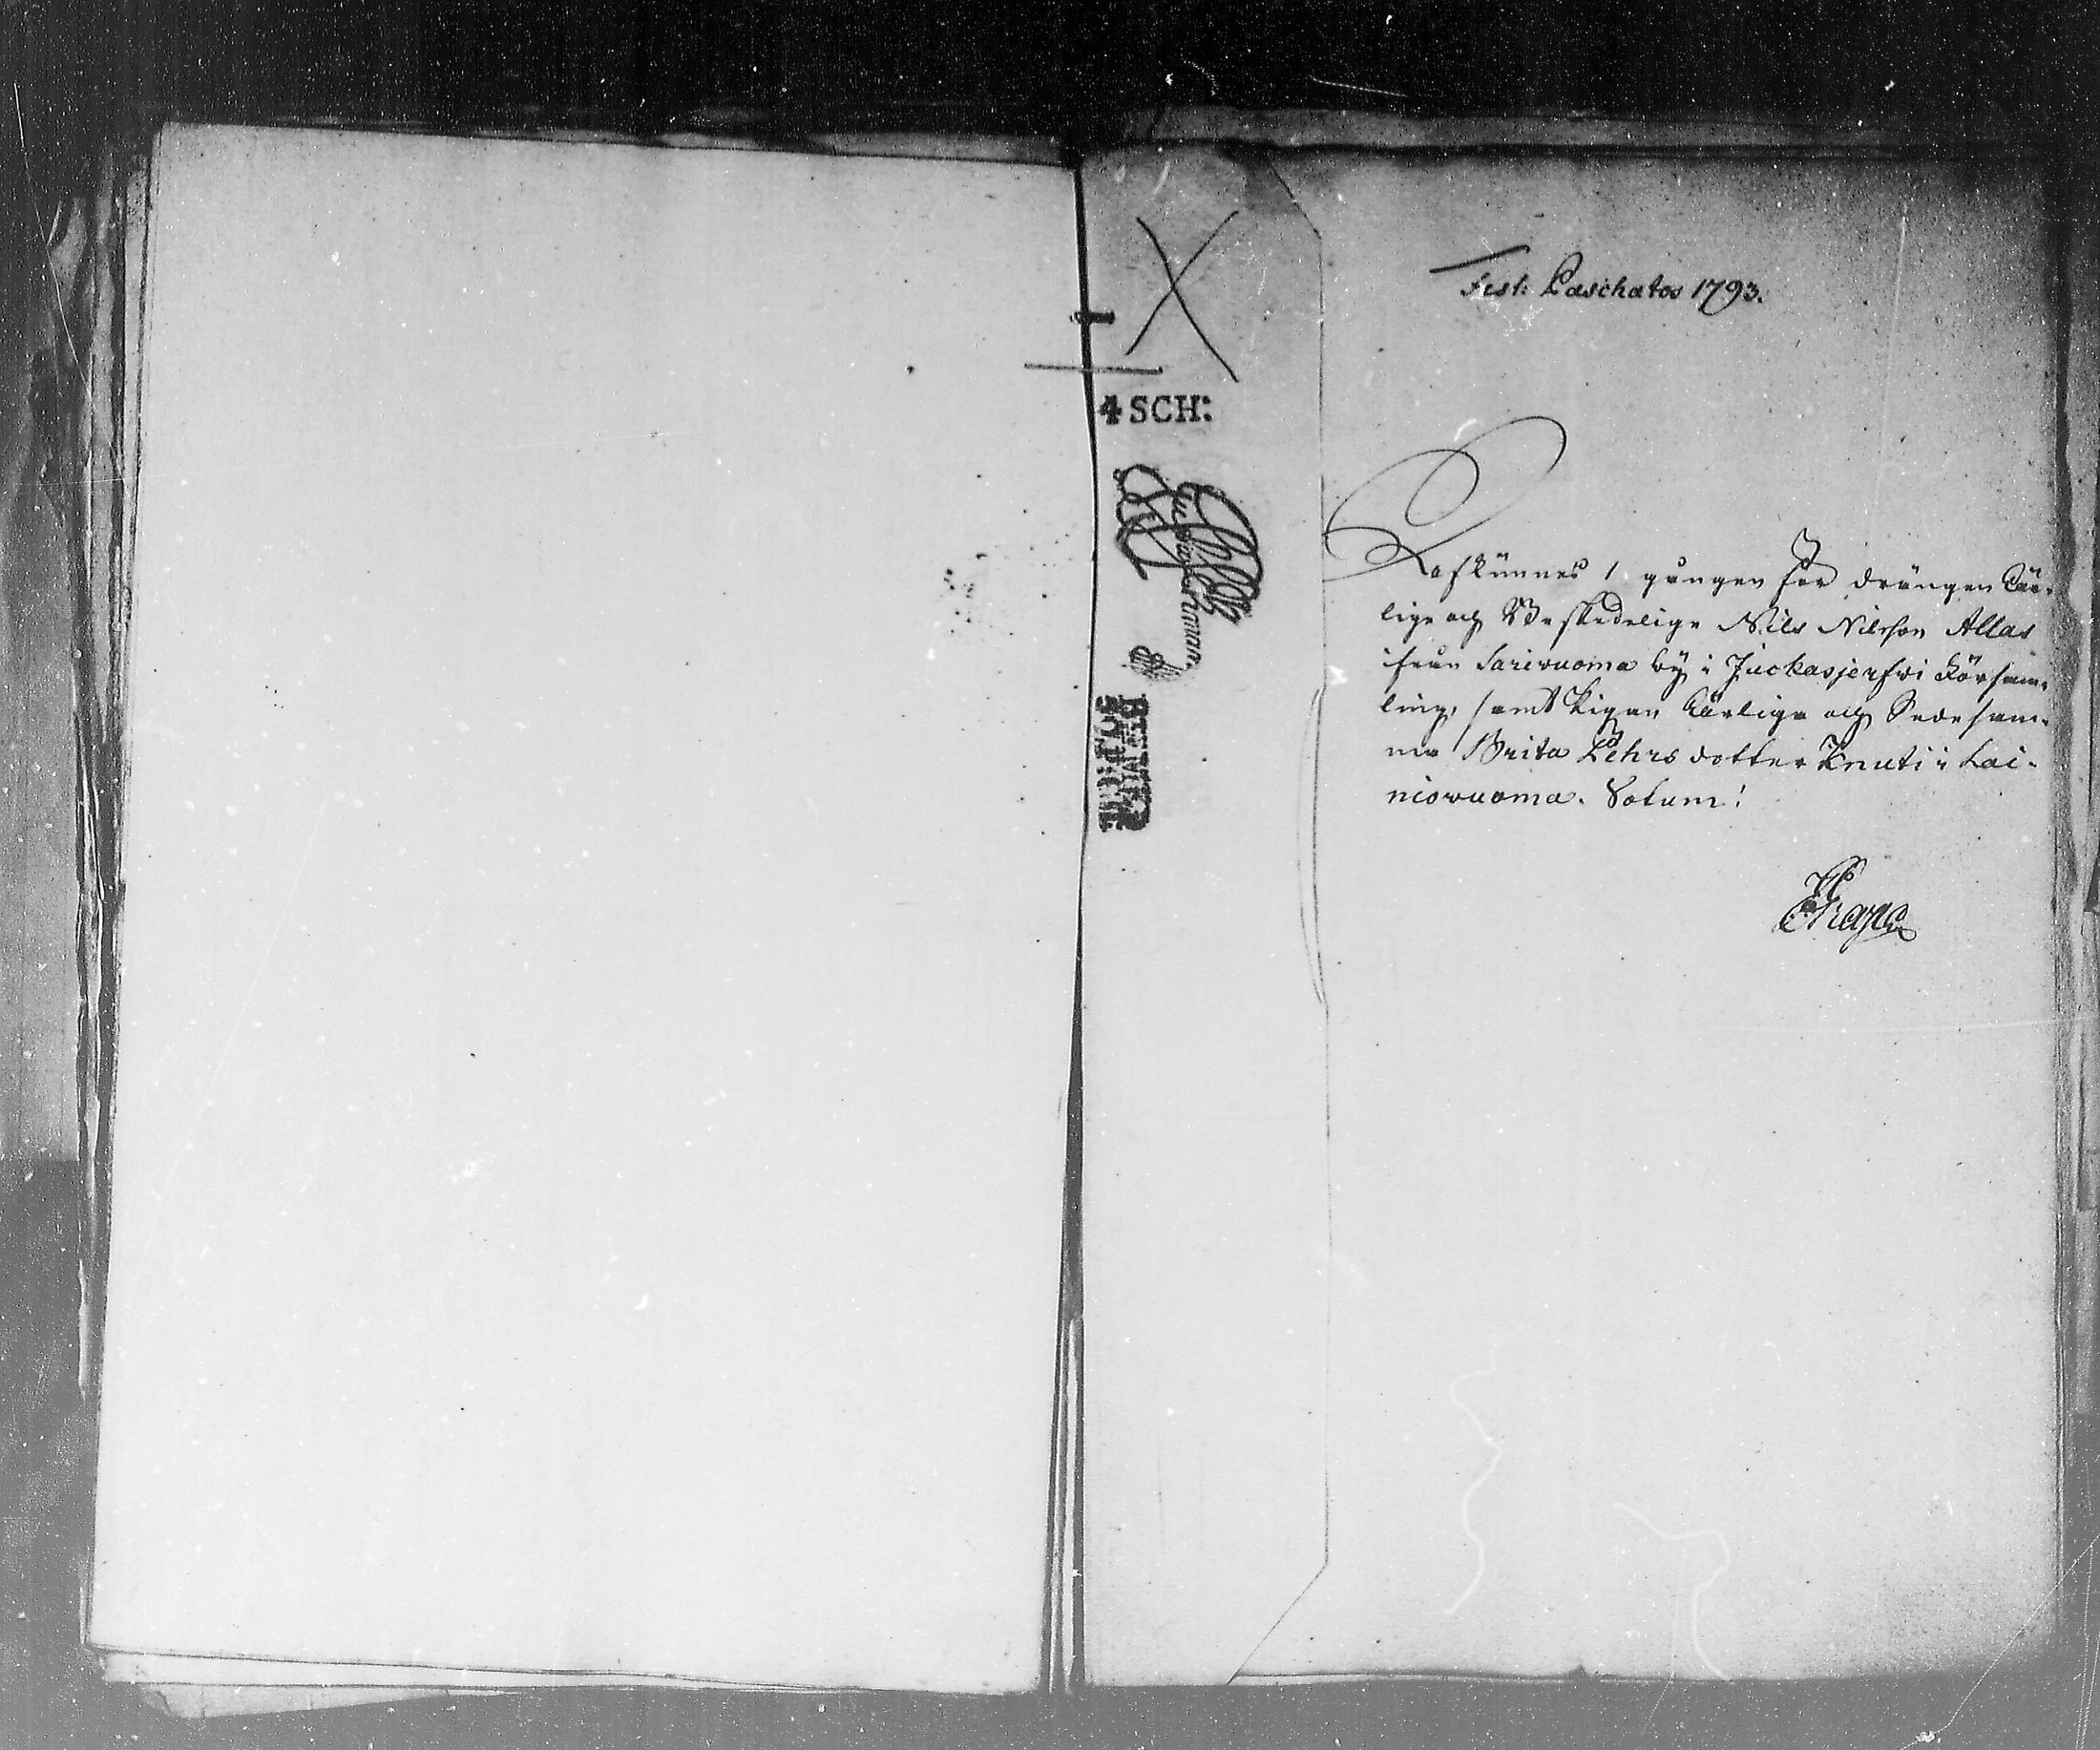 Fest: Paschatos 1793.
4 SCH:
Afkunnes 1. gången för drängen Ähr-
lige och Beskedelige Nils Nilsson Allas
ifrån Sarivuoma by i Juckasjerfwi Församm-
ling, samt Pigan Ährliga och Sedesam-
ma Brita Pehrs dotter Knuti i Lai-
niovuoma. Votum!